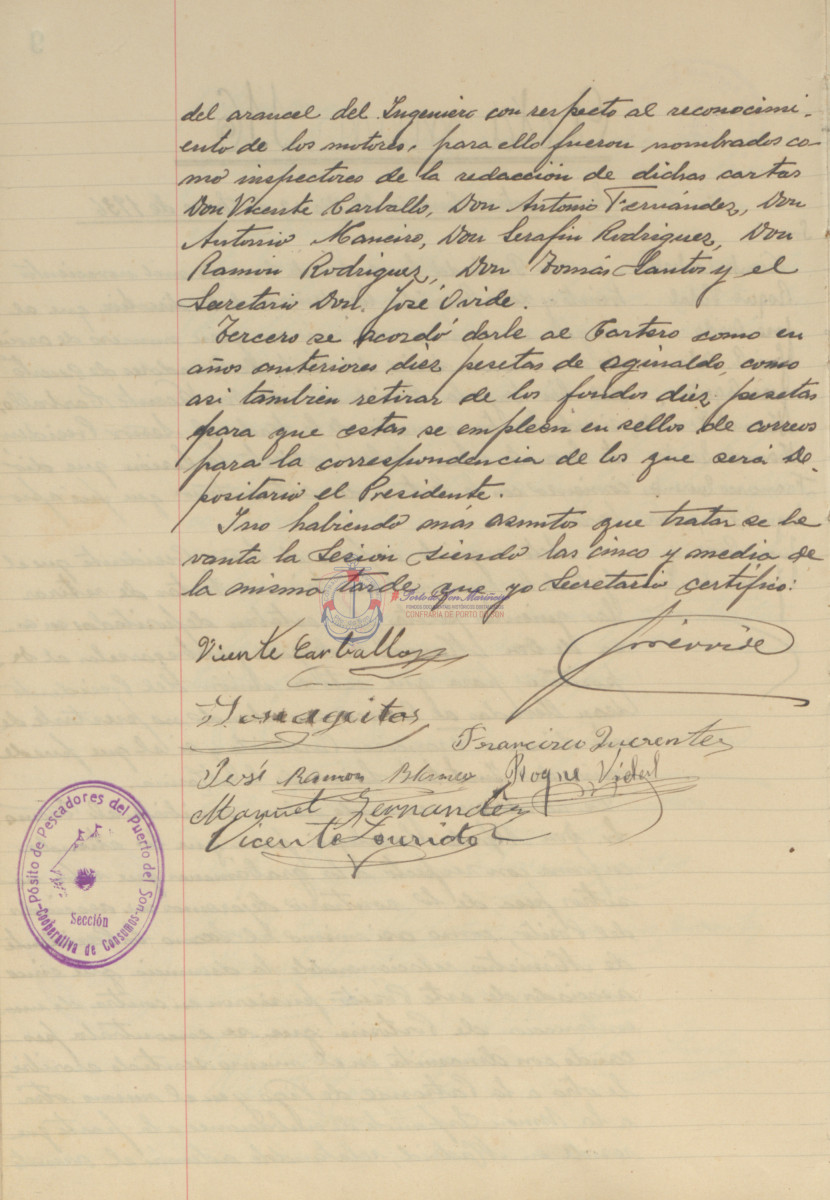 del arancel del Ingeniero con respecto al reconocimi-
ento de los motores, para ello fueron nombrados co-
mo inspectores de la redacción de dichas cartas
Don Vicente Carballo, Don Antonio Fernández, Don
Antonio Maneiro, Don Serafin Rodriguez, Don
Ramón Rodriguez, Don Tomás Santos y el
Secretario Don José Ovide.
Tercero se acordó darle al Cartero como en
años anteriores diez pesetas de aginaldo, como
asi tambien retirar de los fondos diez pesetas
para que estas se empleen en sellos de correos
para la correspondencia de los que será De-
positario el Presidente.
I no habiendo más asuntos que tratar se le
vanta la Sesión siendo las cinco y media de
la misma tarde que yo Secretario certifico:
Porto do Son Mariñeiro
CONFRARÍA DE PORTO DO SON
Vicente Carballo
Francisco
José Ramon Blanco Roque Vidal
Manuel Fernandez
Vicente Lourido
Pósito de Pescadores del Puerto del Son
Sección
Cooperativa de Consumos